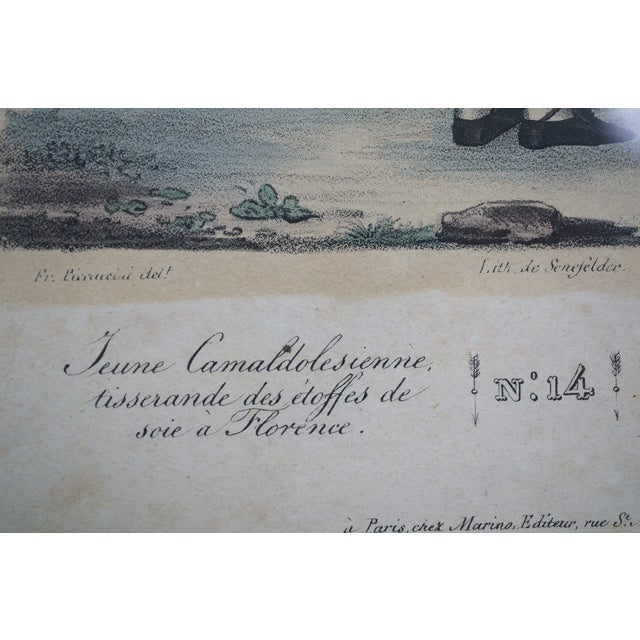 Fr. Pieraccini del.t
Lith. de Senefelder.
Jeune Camaldolesienne,
tisserande des étoffes de
soie à Florence.
N.º 14
à Paris, chez Marino, Editeur, rue S.t